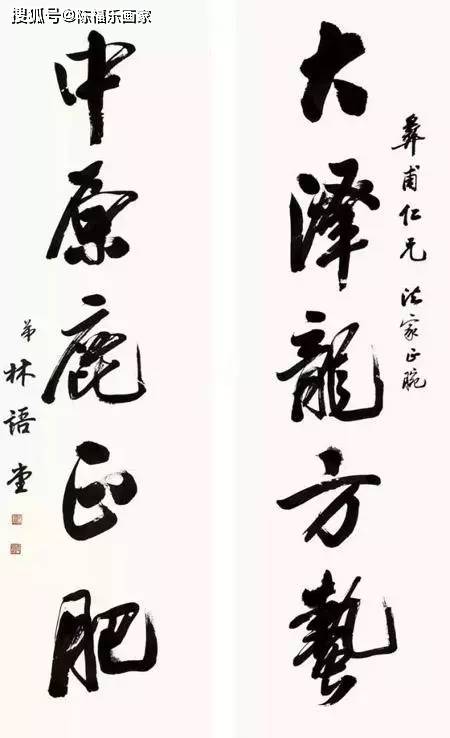 搜狐号@陈福乐画家
彝甫仁兄 法家正腕
大澤龍方蟄
中原鹿正肥
弟 林語堂